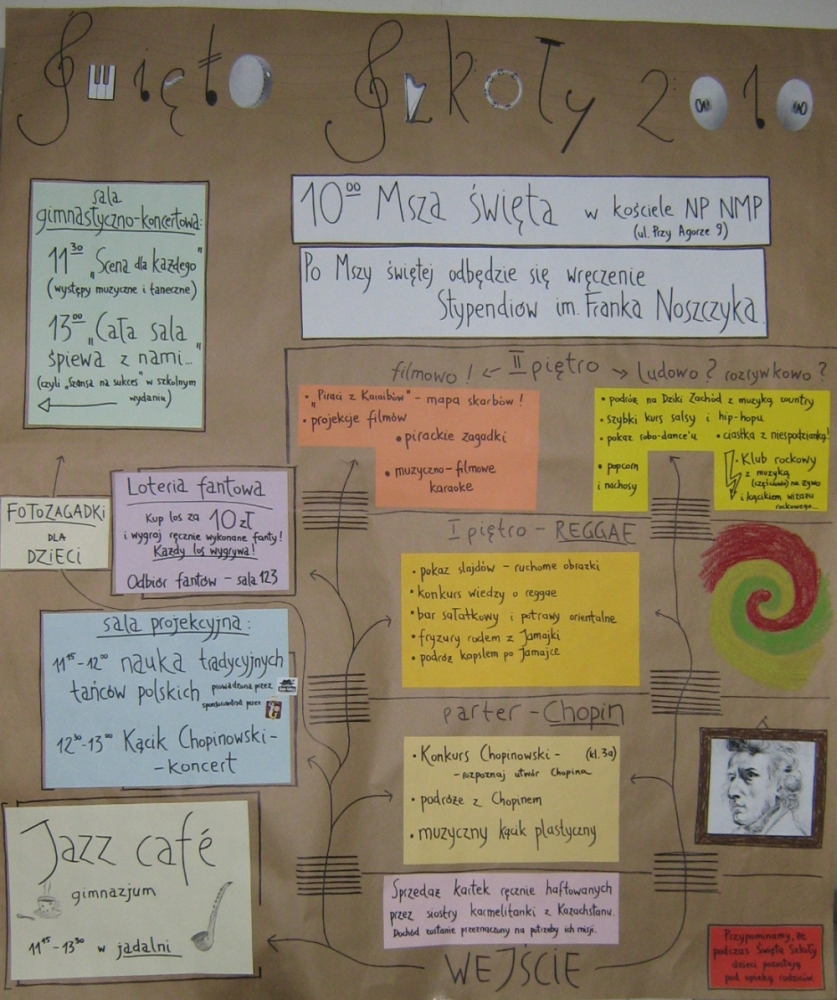 Święto Szkoły 2010
sala
gimnastyczno-koncertowa:
11³⁰ „Scena dla każdego"
(występy muzyczne i taneczne)
13⁰⁰ „Cała sala
śpiewa z nami..."
(czyli „Szansa na sukces" w szkolnym
wydaniu)
10⁰⁰ Msza święta w kościele NP NMP
(ul. Przy Agorze 9)
Po Mszy świętej odbędzie się wręczenie
Stypendiów im. Franka Noszczyka.
filmowo! ← II piętro → ludowo? rozrywkowo?
• „Piraci z Karaibów" - mapa skarbów!
• projekcje filmów
• pirackie zagadki
• muzyczno-filmowe
karaoke
• podróż na Dziki Zachód z muzyką country
• szybki kurs salsy i hip-hopu
• pokaz robo-dance'u
• ciastka z niespodzianką!
• popcorn
i nachosy
• Klub rockowy
z muzyką
(częściowo) na żywo
i kącikiem wizażu
rockowego...
FOTOZAGADKI
DLA
DZIECI
Loteria fantowa
Kup los za 10 zł
i wygraj ręcznie wykonane fanty!
Każdy los wygrywa!
Odbiór fantów - sala 123
I piętro - REGGAE
• pokaz slajdów - ruchome obrazki
• konkurs wiedzy o reggae
• bar sałatkowy i potrawy orientalne
• fryzury rodem z Jamajki
• podróż kapslem po Jamajce
sala projekcyjna:
11¹⁵-12⁰⁰ nauka tradycyjnych
tańców polskich prowadzona przez
sponsorowana przez
12³⁰-13⁰⁰ Kącik Chopinowski-
-koncert
parter - Chopin
• Konkurs Chopinowski - (kl. 3a)
- rozpoznaj utwór Chopina
• podróże z Chopinem
• muzyczny kącik plastyczny
Jazz café
gimnazjum
11¹⁵-13³⁰ w jadalni
Sprzedaż kartek ręcznie haftowanych
przez siostry karmelitanki z Kazachstanu.
Dochód zostanie przeznaczony na potrzeby ich misji.
WEJŚCIE
Przypominamy, że
podczas Święta Szkoły
dzieci pozostają
pod opieką rodziców.